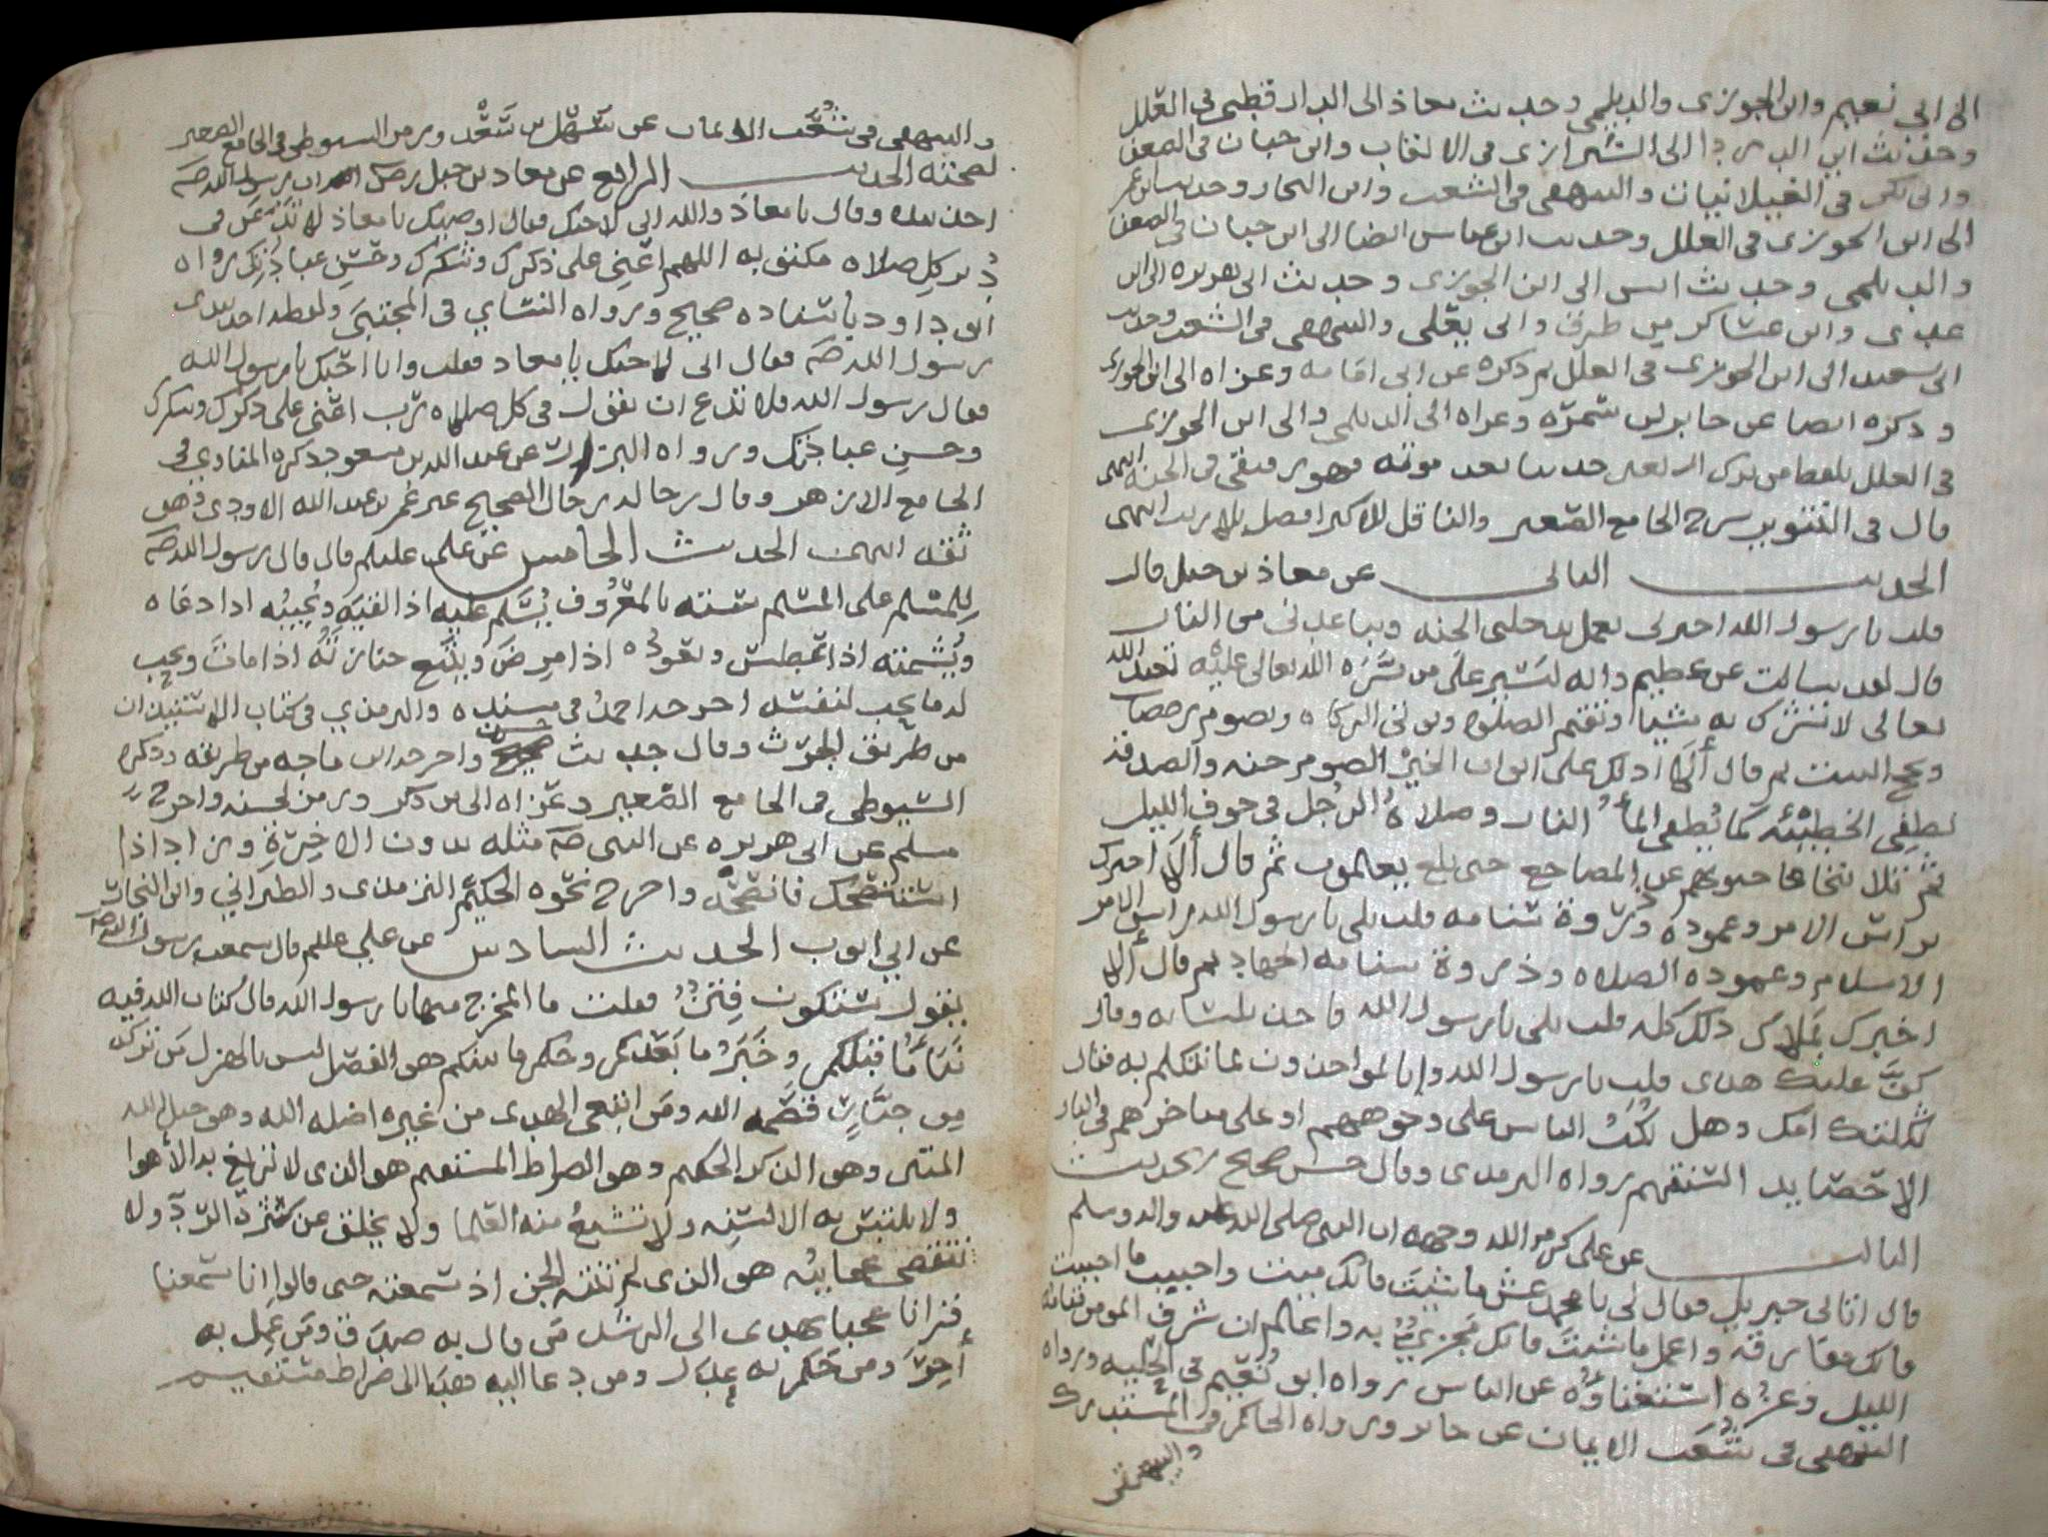 الى ابي نعيم وابن الجوزي والديلمي وحديث معاذ الى الدارقطني في العلل
وحديث ابي الدردا الى الشيرازي في الالقاب وابن حبان في الضعفا
وابي بكر في الغيلانيات والبيهقي في الشعب وابن النجار وحديث ابن عمر
الى ابن الجوزي في العلل وحديث ابن عباس ايضا الى ابن حبان في الضعفا
والديلمي وحديث انس الى ابن الجوزي وحديث ابي هريرة الى ابن
عدي وابن عساكر من طرق والى يعلى والبيهقي في الشعب وحديث
ابي سعيد الى ابن الجوزي في العلل ثم ذكره عن ابي امامه وعزاه الى ابن الجوزي
وذكره ايضا عن جابر بن سمرة وعزاه الى الديلمي والى ابن الجوزي
في العلل بلفظ من ترك اربعين حديثا بعد موته فهو رفيقي في الجنه انتهى
قال في التنوير شرح الجامع الصغير والناقل للاكثر افضل بلا ريب انتهى
الحديث الثاني عن معاذ بن جبل قال
قلت يا رسول الله اخبرني بعمل يدخلني الجنه ويباعدني من النار
قال لقد سالت عن عظيم وانه ليسير على من يسره الله تعالى عليه تعبد الله
تعالى لا تشرك به شيا وتقيم الصلوه وتوتي الزكاه وتصوم رمضان
وتحج البيت ثم قال ألا ادلك على ابواب الخير الصوم جنه والصدقة
تطفي الخطيئه كما يطفي الماء النار وصلاة الرجل في جوف الليل
ثم تلا تتجافا جنوبهم عن المضاجع حتى بلغ يعملون ثم قال ألا اخبرك
براس الامر وعموده وذروة سنامه قلت بلى يا رسول الله قال راس الامر
الاسلام وعموده الصلاه وذروة سنامه الجهاد ثم قال ألا
اخبرك بملاك ذلك كله قلت بلى يا رسول الله فاخذ بلسانه وقال
كف عليك هذا قلت يا رسول الله وإنا لمواخذون بما نتكلم به فقال
ثكلتك امك وهل يكب الناس على وجوههم او على مناخرهم في النار
الا حصايد السنتهم رواه الترمذي وقال حسن صحيح الحديث
الثالث عن علي كرم الله وجهه ان النبي صلى الله عليه واله وسلم
قال اتاني جبريل فقال لي يا محمد عش ما شيت فانك ميت واحبب ما احببت
فانك مفارقه واعمل ما شيت فانك مجزي به واعلم ان شرف المومن قيامه
الليل وعزه استغناؤه عن الناس رواه ابو نعيم في الحليه ورواه
البيهقي في شعب الايمان عن جابر ورواه الحاكم في المستدرك
والبيهقي
والبيهقي في شعب الايمان عن سهل بن سعد ورمز السيوطي في الجامع الصغير
لصحته الحديث الرابع عن معاذ بن جبل رضي الله ان رسول الله صلم
اخذ بيده وقال يا معاذ والله اني لاحبك فقال اوصيك يا معاذ لا تدعن في
دبر كل صلاه مكتوبه اللهم اعني على ذكرك وشكرك وحسن عبادتك رواه
ابو داود باسناده صحيح ورواه النسائي في المجتبى ولفظه اخذ بيدي
رسول الله صلم فقال اني لاحبك يا معاذ فقلت وانا احبك يا رسول الله
فقال رسول الله فلا تدع ان تقول في كل صلاه رب اعني على ذكرك وشكرك
وحسن عبادتك ورواه البزار عن عبد الله بن مسعود ذكره المناوي في
الجامع الازهر وقال رجاله رجال الصحيح غير عمر بن عبد الله الاودي وهو
ثقه انتهى الحديث الخامس عن علي عليلم قال قال رسول الله صلم
للمسلم على المسلم سته بالمعروف يسلم عليه اذا لقيه ويجيبه اذا دعاه
ويشمته اذا عطس ويعوده اذا مرض ويتبع جنازته اذا مات ويحب
له ما يحب لنفسه اخرجه احمد في مسنده والترمذي في كتاب الاستيذان
من طريق الحرث وقال حديث حسن واخرجه ابن ماجه من طريقه وذكره
السيوطي في الجامع الصغير وعزاه الى من ذكر ورمز لحسنه واخرج
مسلم عن ابي هريره عن النبي صلم مثله بدون الاخيرة وزاد اذا
استنصحك فانصحه واخرج نحوه الحكيم الترمذي والطبراني وابن النجار
عن ابي ايوب الحديث السادس عن علي عليلم قال سمعت رسول الله صلم
يقول ستكون فتن قلت ما المخرج منها يا رسول الله قال كتاب الله فيه
نبأ ما قبلكم وخبر ما بعدكم وحكم ما بينكم هو الفصل ليس بالهزل من تركه
من جبار قصمه الله ومن ابتغى الهدى من غيره اضله الله وهو حبل الله
المتين وهو الذكر الحكيم وهو الصراط المستقيم هو الذي لا تزيغ به الأهوا
ولا يلتبس به الالسنه ولا تشبع منه العلما ولا يخلق عن كثرة الرد ولا
تنقضي عجايبه هو الذي لم تنته الجن اذ سمعته حتى قالوا انا سمعنا
قرانا عجبا يهدي الى الرشد من قال به صدق ومن عمل به
أجر ومن حكم به عدل ومن دعا اليه هدى الى صراط مستقيم